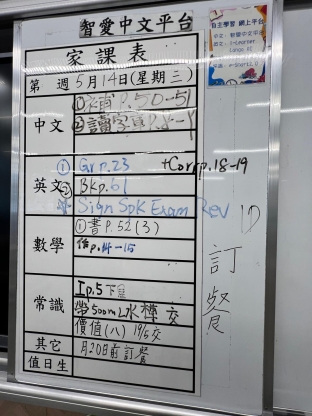 智愛中文平台
自主學習 網上平台
家課表
第 週 5月14日(星期三)
中文
①補 P.50-51
②讀字寫 P.
英文
① Gr p.23 + Corr p.18-19
② Bkp.61
☆ Sign Spk Exam Rev
數學
①書 P.52 (3)
p.14-15
訂餐
常識
Ip.5 下
帶500mL水樽 交
價值(八) 19/5交
其它
月20日前訂餐
值日生